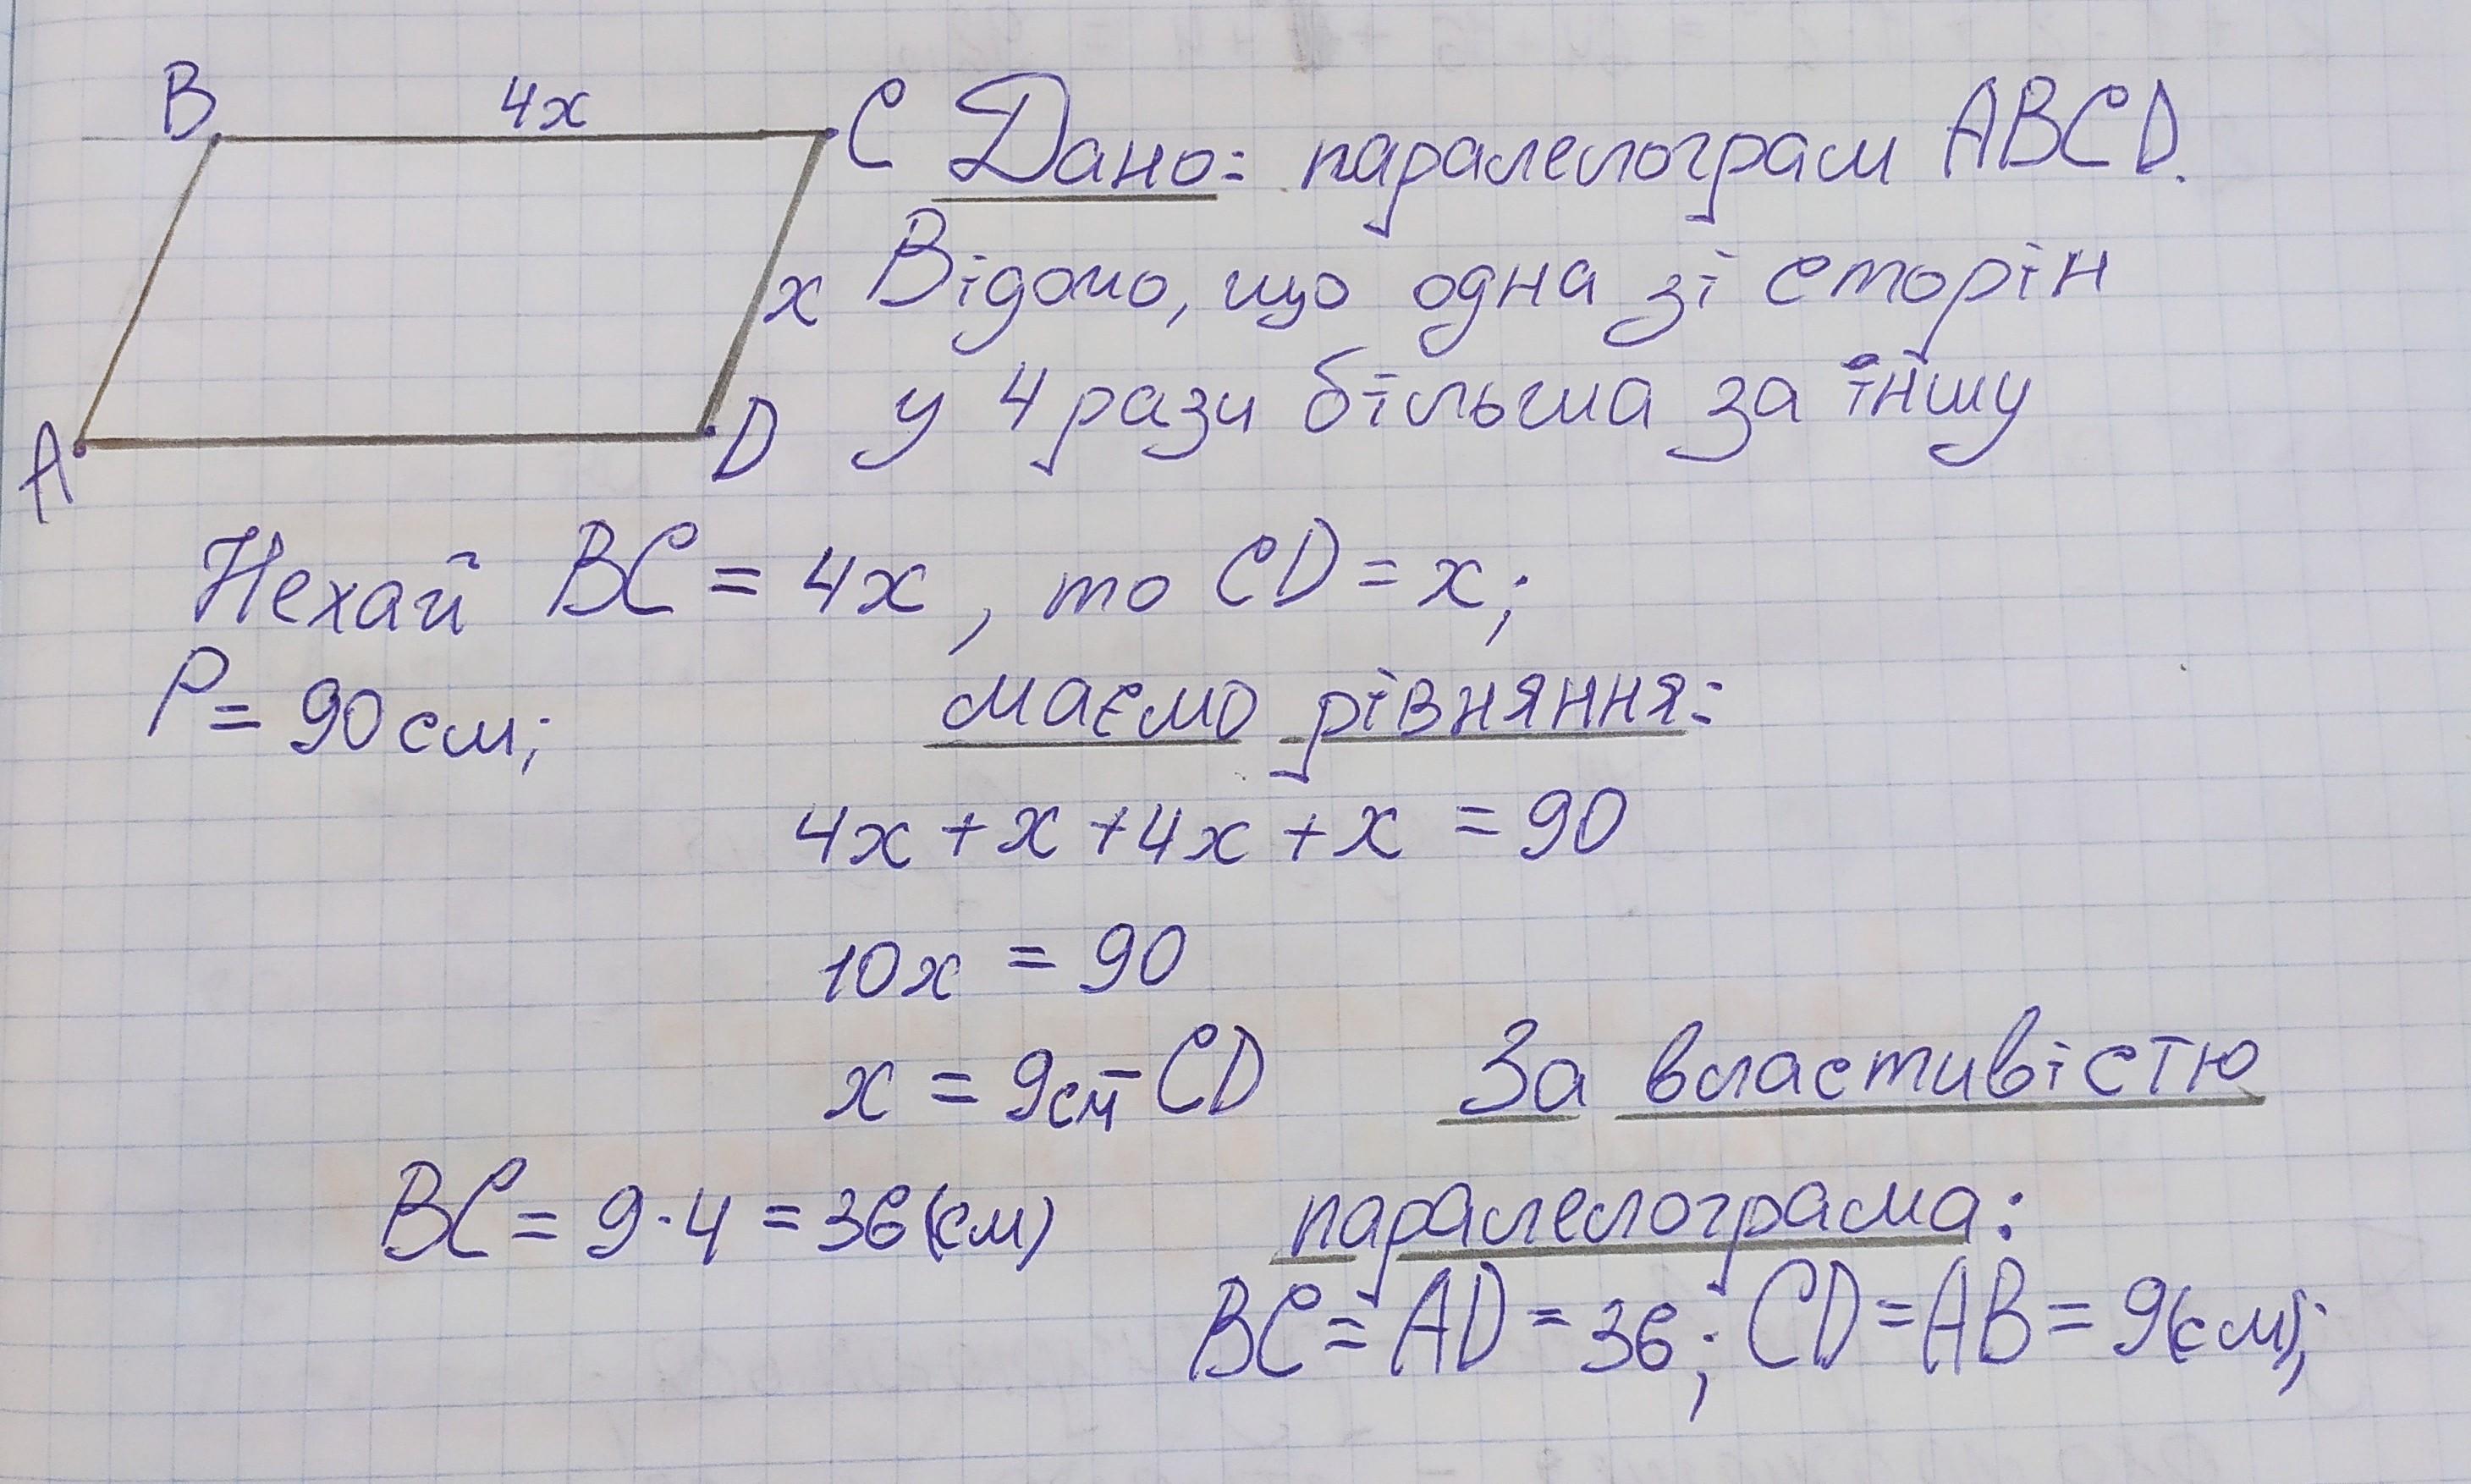 B 4x C Дано: паралелограм ABCD.
x Відомо, що одна зі сторін
A D у 4 рази більша за іншу
Нехай BC = 4x, то CD = x;
P = 90 см; маємо рівняння:
4x + x + 4x + x = 90
10x = 90
x = 9см - CD За властивістю
BC = 9 · 4 = 36(см) паралелограма:
BC = AD = 36; CD = AB = 9(см);